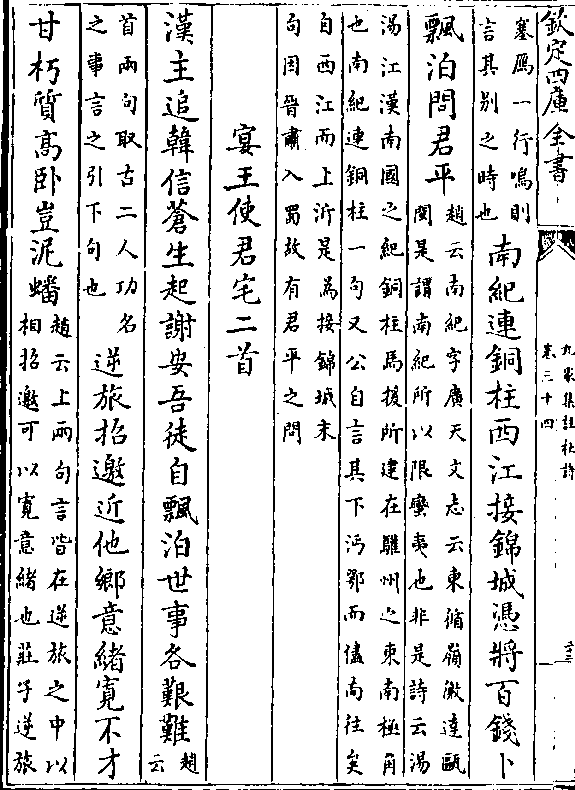 欽定四庫全書
九家集註杜詩
卷三十四
塞鴈一行鳴則
言其别之時也
南紀連銅柱西江接錦城憑將百錢卜
飄泊問君平
趙云南紀字廣天文志云東循嶺徼達甌
閩是謂南紀所以限蠻夷也非是詩云滔
滔江漢南國之紀銅柱馬援所建在驩州之東南極角
也南紀連銅柱一句又公自言其下沔鄂而儘南往矣
自西江而上泝是為接錦城末
句因晉肅入蜀故有君平之問
宴王使君宅二首
漢主追韓信蒼生起謝安吾徒自飄泊世事各艱難
趙云
首兩句取古二人功名
之事言之引下句也
逆旅招邀近他鄉意緒寛不才
甘朽質髙卧豈泥蟠
趙云上兩句言皆在逆旅之中以
相招邀可以寛意緒也莊子逆旅